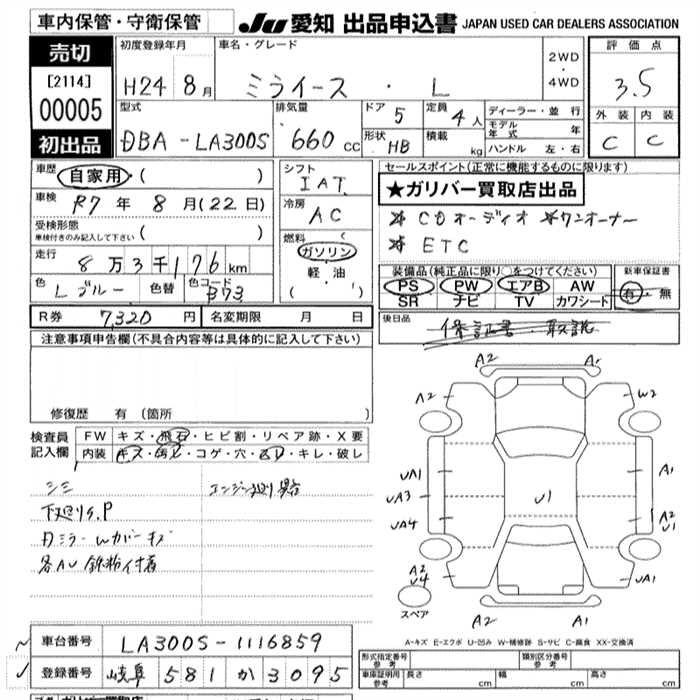 車内保管・守衛保管
JU 愛知 出品申込書 JAPAN USED CAR DEALERS ASSOCIATION
売切
[2114]
00005
初出品
初度登録年月 車名・グレード
H24 8月 ミライース ・ L
2WD
・
4WD
評価点
3.5
外装 内装
C C
型式 排気量 ドア 定員
DBA-LA300S 660 cc 5 4人
形状 HB 積載 kg
ディーラー・並行
モデル年式 年
ハンドル 左・右
車歴 自家用 ( )
車検 R7年 8月(22日)
受検形態
車検付きのみ記入して下さい ( )
走行 8万3千176km
色 Lブルー 色替 色コード B73
シフト
IAT
冷房
AC
燃料
ガソリン
軽・油
( )
セールスポイント(正常に機能するものに限ります)
★ガリバー買取店出品
* CDオーディオ * ワンオーナー
* ETC
装備品(純正品に限り○をつけてください)
PS PW エアB AW
SR ナビ TV カワシート
新車保証書
有・無
R券 7,320円 名変期限 月 日
後日品 保証書・取説
注意事項申告欄(不具合内容等は具体的に記入して下さい)
修復歴 有 (箇所 )
検査員記入欄
FW キズ・飛石・ヒビ割・リペア跡・X要
内装 キズ・汚レ・コゲ・穴・凹ミ・キレ・破レ
シミ
下廻りサ.P
カミラーwカバーキズ
各AU 鉄粉付着
A2 A1
A2 W2
UA1 A1
UA3 U1
UA4 A2
U1
A2
U4 UA1
スペア
A2 A1
A-キズ E-エクボ U-凹み W-補修跡 S-サビ C-腐食 XX-交換済
車台番号 LA300S-1116859
登録番号 岐阜 581 か 3095
形式指定番号
参考
類別区分番号
参考
車庫証明用
参考
長さ cm 幅 cm 高さ cm